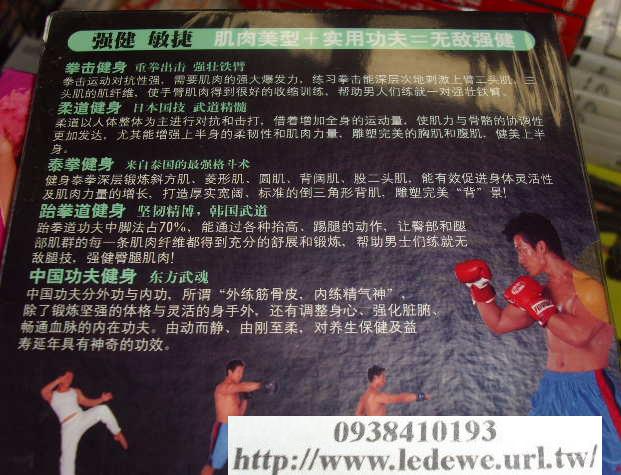 强健 敏捷 肌肉美型＋实用功夫＝无敌强健
拳击健身 重拳出击 强壮铁臂
拳击运动对抗性强，需要肌肉的强大爆发力，练习拳击能深层次地刺激上臂二头肌、三
头肌的肌纤维，使手臂肌肉得到很好的收缩训练，帮助男人们练就一对强壮铁臂。
柔道健身 日本国技 武道精髓
柔道以人体整体为主进行对抗和击打，借着增加全身的运动量，使肌力与骨骼的协调性
更加发达，尤其能增强上半身的柔韧性和肌肉力量，雕塑完美的胸肌和腹肌，健美上半
身。
泰拳健身 来自泰国的最强格斗术
健身泰拳深层锻炼斜方肌、菱形肌、圆肌、背阔肌、股二头肌，能有效促进身体灵活性
及肌肉力量的增长，打造厚实宽阔、标准的倒三角形背肌，雕塑完美“背”景！
跆拳道健身 坚韧精博，韩国武道
跆拳道功夫中脚法占70%，能通过各种抬高、踢腿的动作，让臀部和腿
部肌群的每一条肌肉纤维都得到充分的舒展和锻炼，帮助男士们练就无
敌腿技，强健臂腿肌肉！
中国功夫健身 东方武魂
中国功夫分外功与内功，所谓“外练筋骨皮，内练精气神”，
除了锻炼坚强的体格与灵活的身手外，还有调整身心、强化脏腑、
畅通血脉的内在功夫。由动而静、由刚至柔，对养生保健及益
寿延年具有神奇的功效。
0938410193
http://www.ledewe.url.tw/